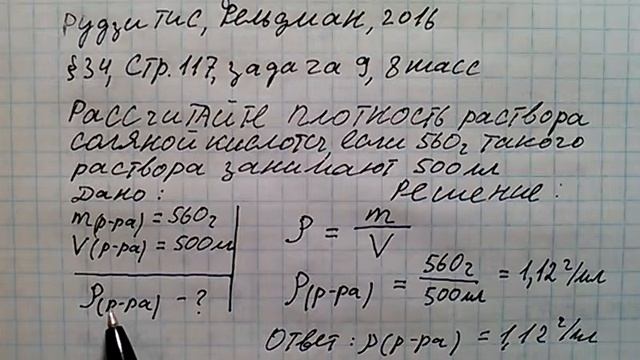 Рудзитис, Фельдман, 2016
§34, Стр. 117, задача 9, 8 класс
РАССЧИТАЙТЕ ПЛОТНОСТЬ раствора
соляной кислоты, если 560г такого
раствора занимают 500мл
Дано: Решение:
m(р-ра) = 560г
V(р-ра) = 500мл
ρ(р-ра) - ?
ρ = m/V
ρ(р-ра) = 560г/500мл = 1,12 г/мл
Ответ: ρ(р-ра) = 1,12 г/мл